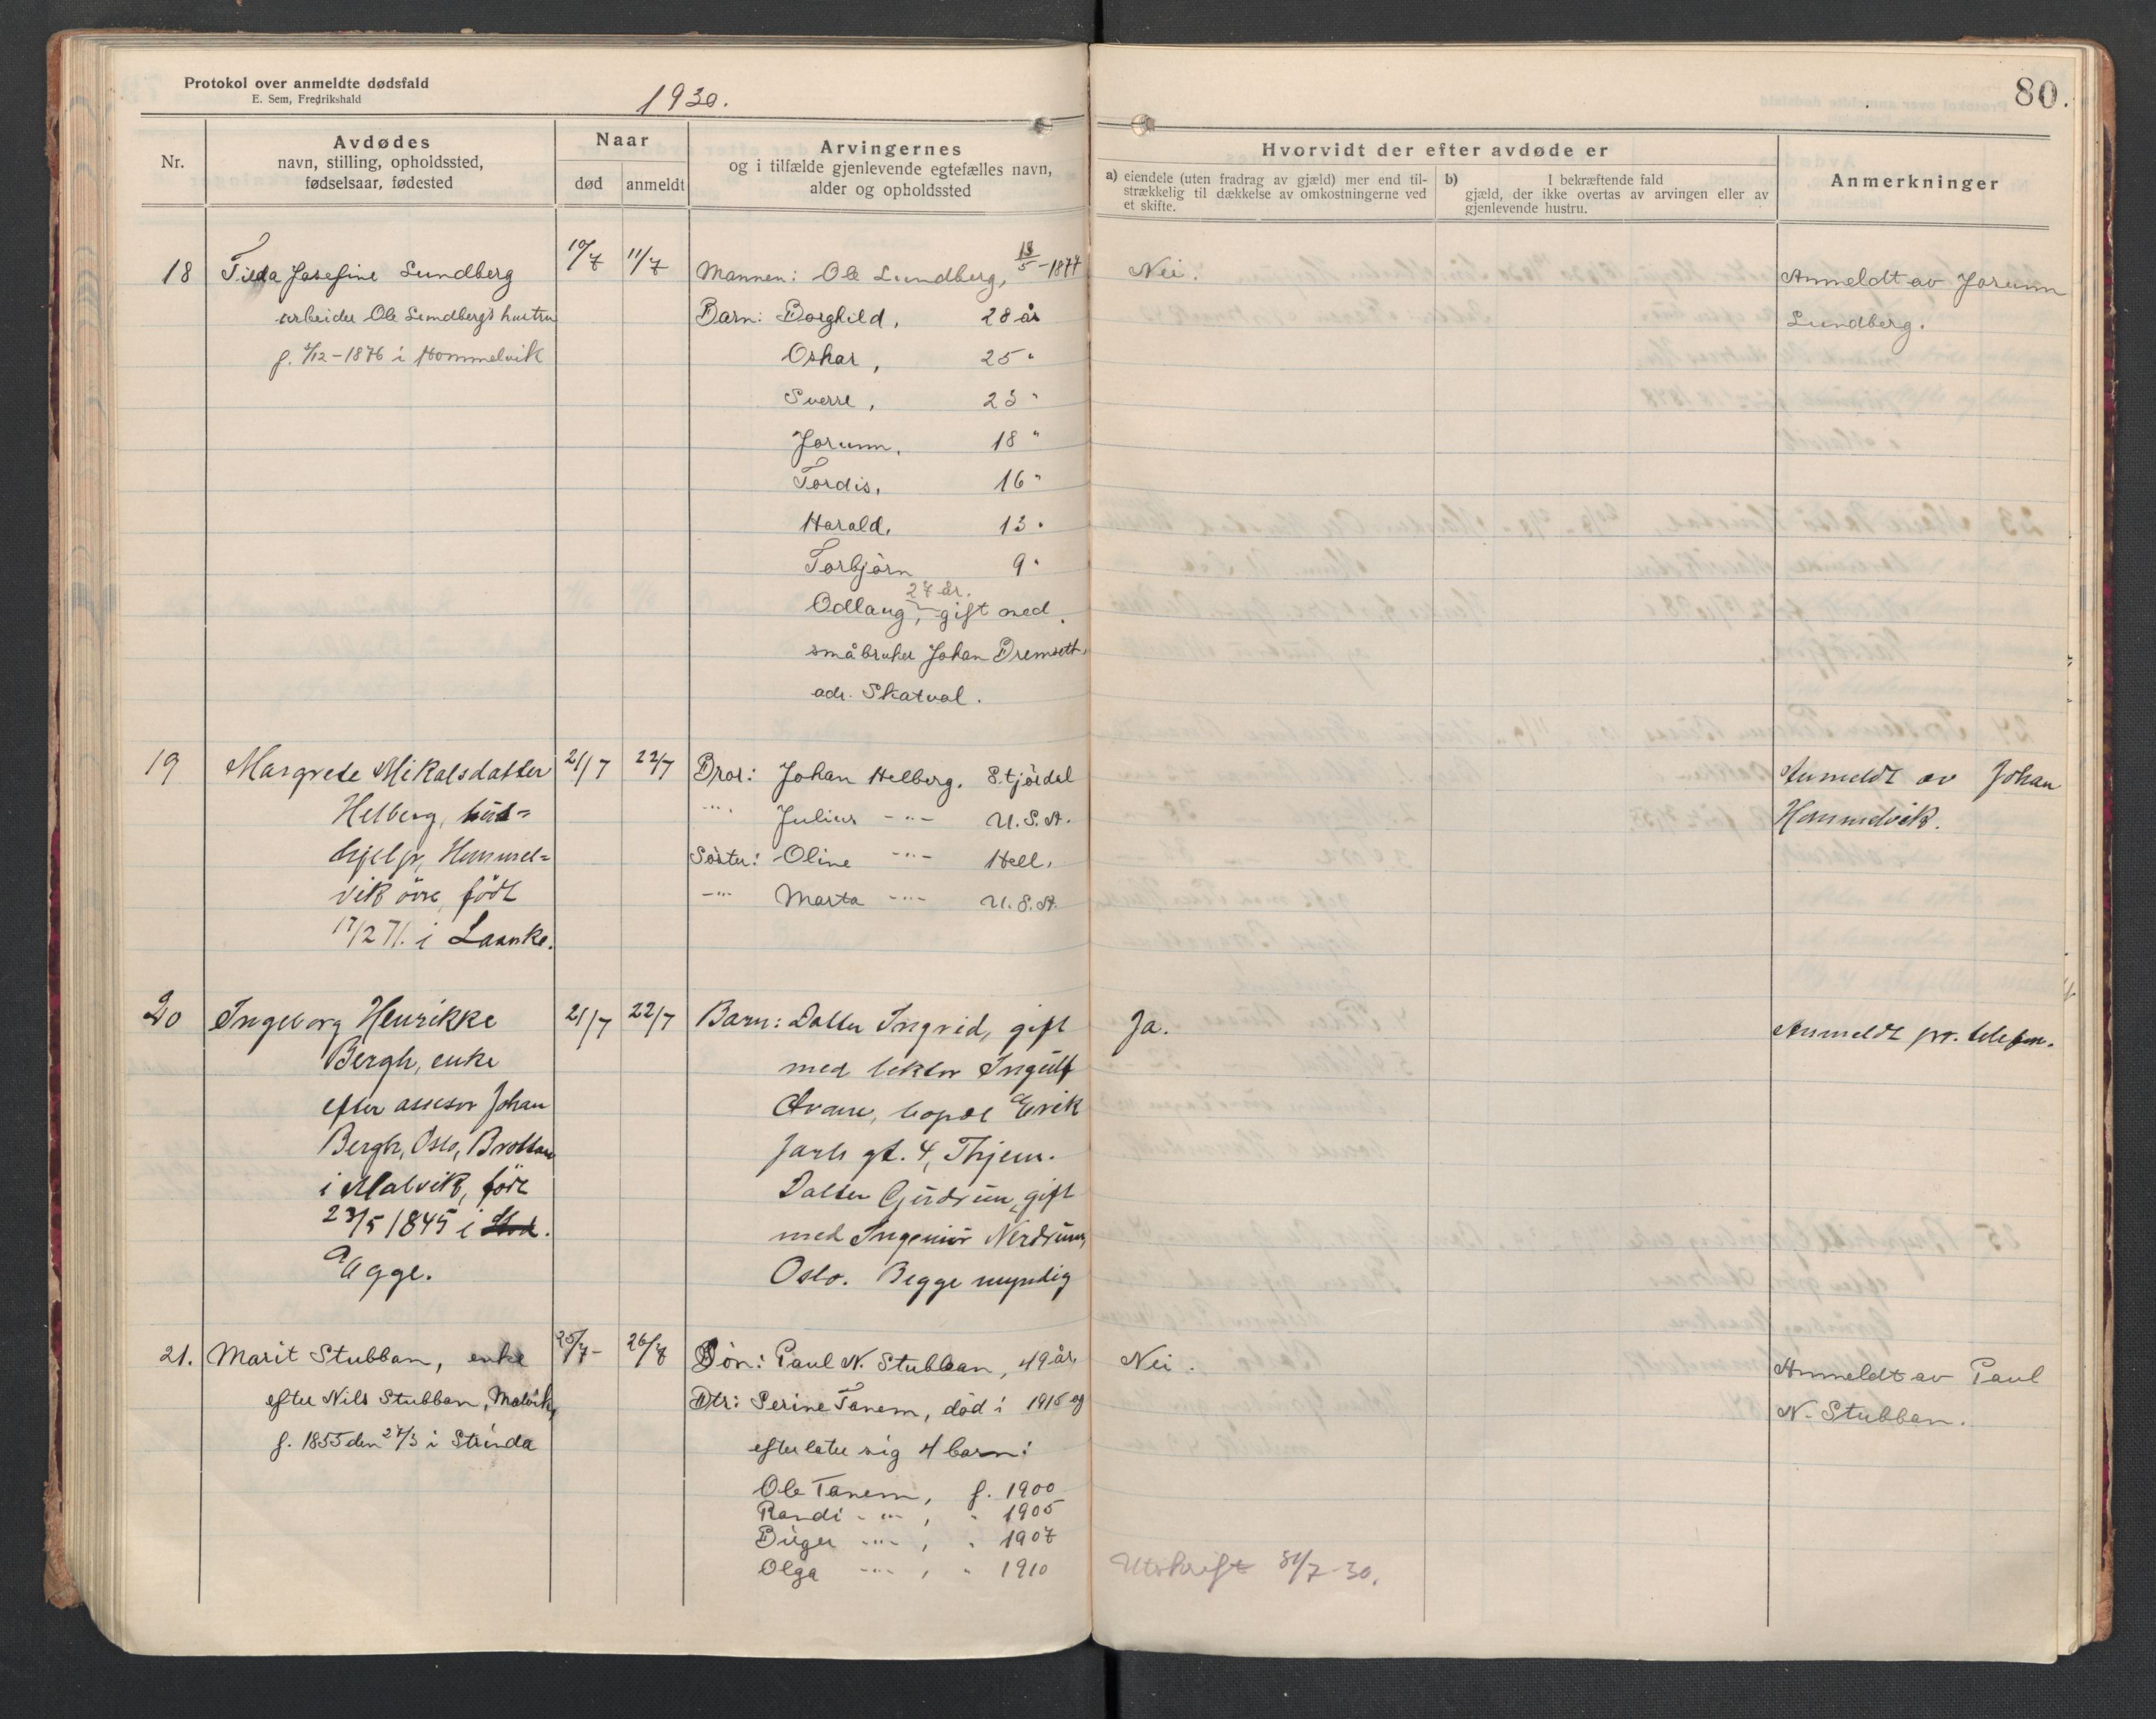 Protokol over anmeldte dødsfald
E. Sem, Fredrikshald
1930.
80.
Nr.
Avdødes
navn, stilling, opholdssted,
fødselsaar, fødested
Naar
død
anmeldt
Arvingernes
og i tilfælde gjenlevende egtefælles navn,
alder og opholdssted
Hvorvidt der efter avdøde er
a) eiendele (uten fradrag av gjæld) mer end til-
strækkelig til dækkelse av omkostningerne ved
et skifte.
b) I bekræftende fald
gjæld, der ikke overtas av arvingen eller av
gjenlevende hustru.
Anmerkninger
18
Tilda Josefine Lundberg
arbeider Ole Lundbergs hustru
f. 4/12-1876 i Hommelvik
10/7
11/7
Mannen: Ole Lundberg, 18/5-1877
Barn: Borghild, 28 år
Oskar, 25 "
Sverre, 23 "
Jorunn, 18 "
Tordis, 16 "
Harald, 13 "
Torbjörn 9 "
27 år.
Odlaug, gift med
småbruker Johan Dremsett,
adr. Skatval.
Nei.
Anmeldt av Jorunn
Lundberg.
19
Margrete Mikalsdatter
Helberg, hus=
hjelp, Hommel=
vik övre, født
17/2 71. i Laanke.
21/7
22/7
Bror: Johan Helberg. Stjördal
-"- Julius -"- U.S.A.
Söster: Oline -"- Hell.
-"- Marta -"- U.S.A.
Anmeldt av Johan
Hommelvik.
20
Ingeborg Henrikke
Bergh, enke
efter assesor Johan
Bergh, Oslo, Brottem
i Malvik, født
23/5 1845 i Stod.
Egge.
21/7
22/7
Barn: Datter Ingrid, gift
med lektor Ingulf
bopæl Erik
Jarls gt. 4, Thjem.
Datter Gudrun, gift
med Ingeniör Nerdrum,
Oslo. Begge myndig
Ja.
Anmeldt pr. telefon.
21.
Marit Stubban, enke
efter Nils Stubban, Malvik,
f. 1855 den 27/3 i Strinda
25/7-
26/7
Sön: Paul N. Stubban, 49 år,
Dtr: Serine Tanem, död i 1915 og
efterlater sig 4 barn:
Ole Tanem, f. 1900
Randi -"-, " 1905
Birger -"-, " 1907
Olga -"-, " 1910
Nei.
Anmeldt av Paul
N. Stubban.
Utskrift 31/7-30.